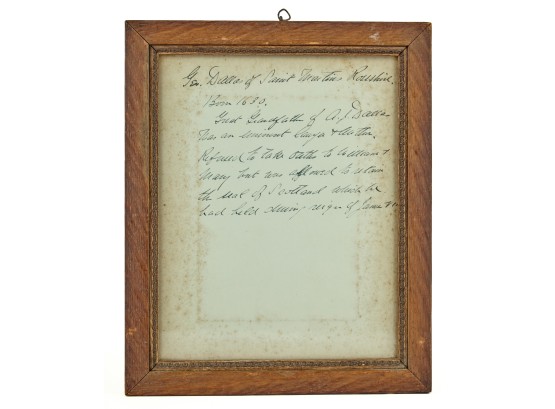 Geo. Dallas of Saint Martins Rosshire.
Born 1630.
Great Grandfather of A. J. Dallas
Was an eminent lawyer & writer.
Refused to take oaths to William &
Mary but was allowed to retain
the seal of Scotland which he
had held during reign of James